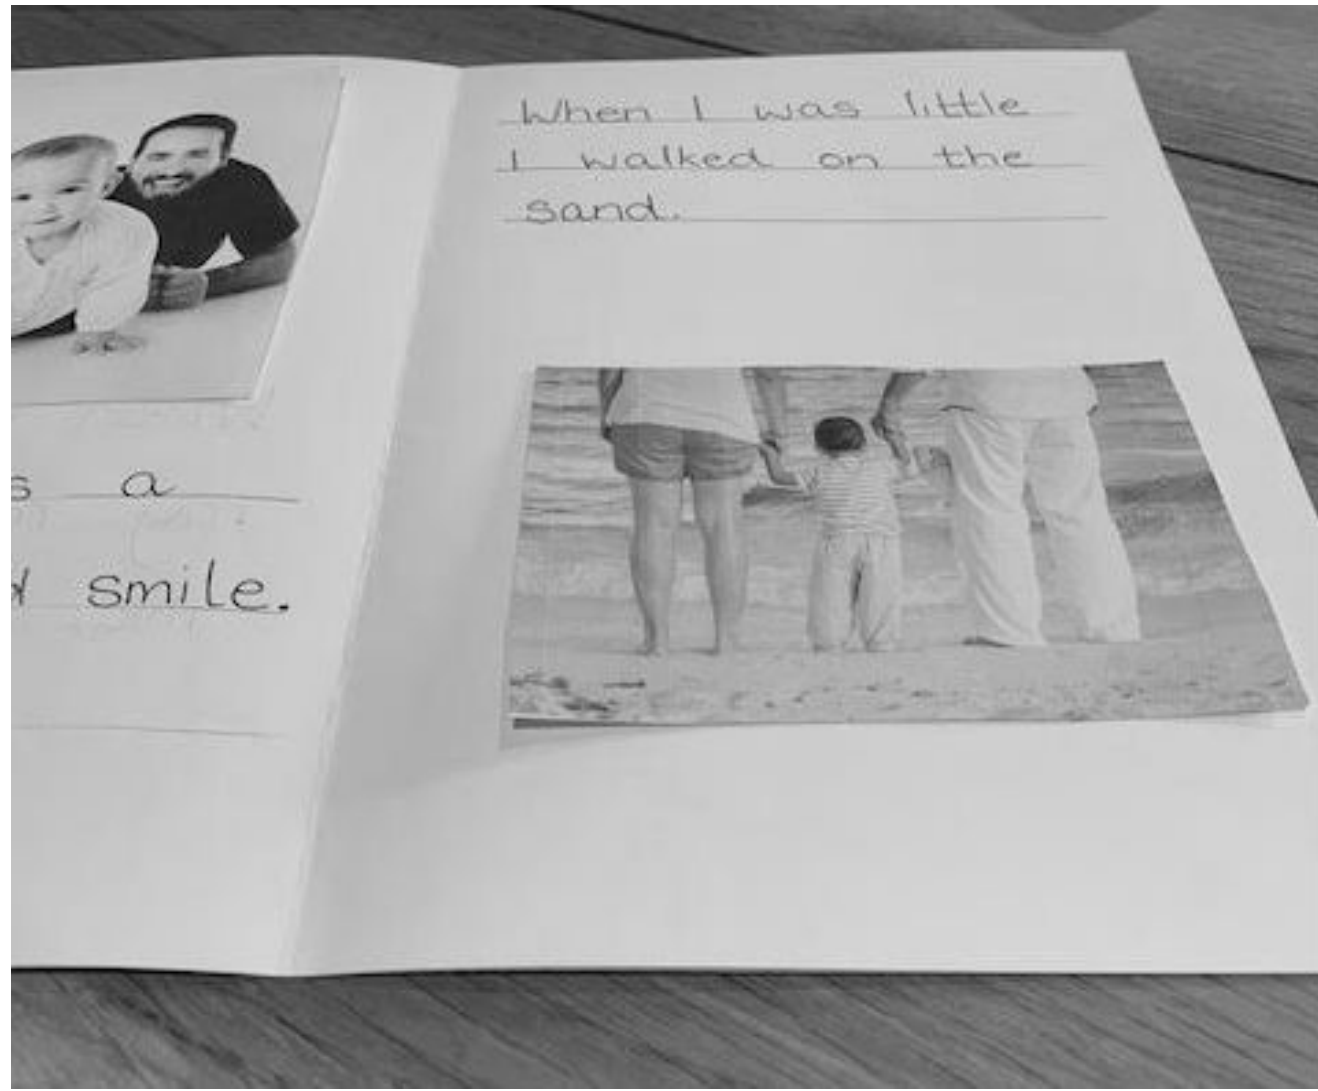 a
smile.
When I was little
I walked on the
sand.